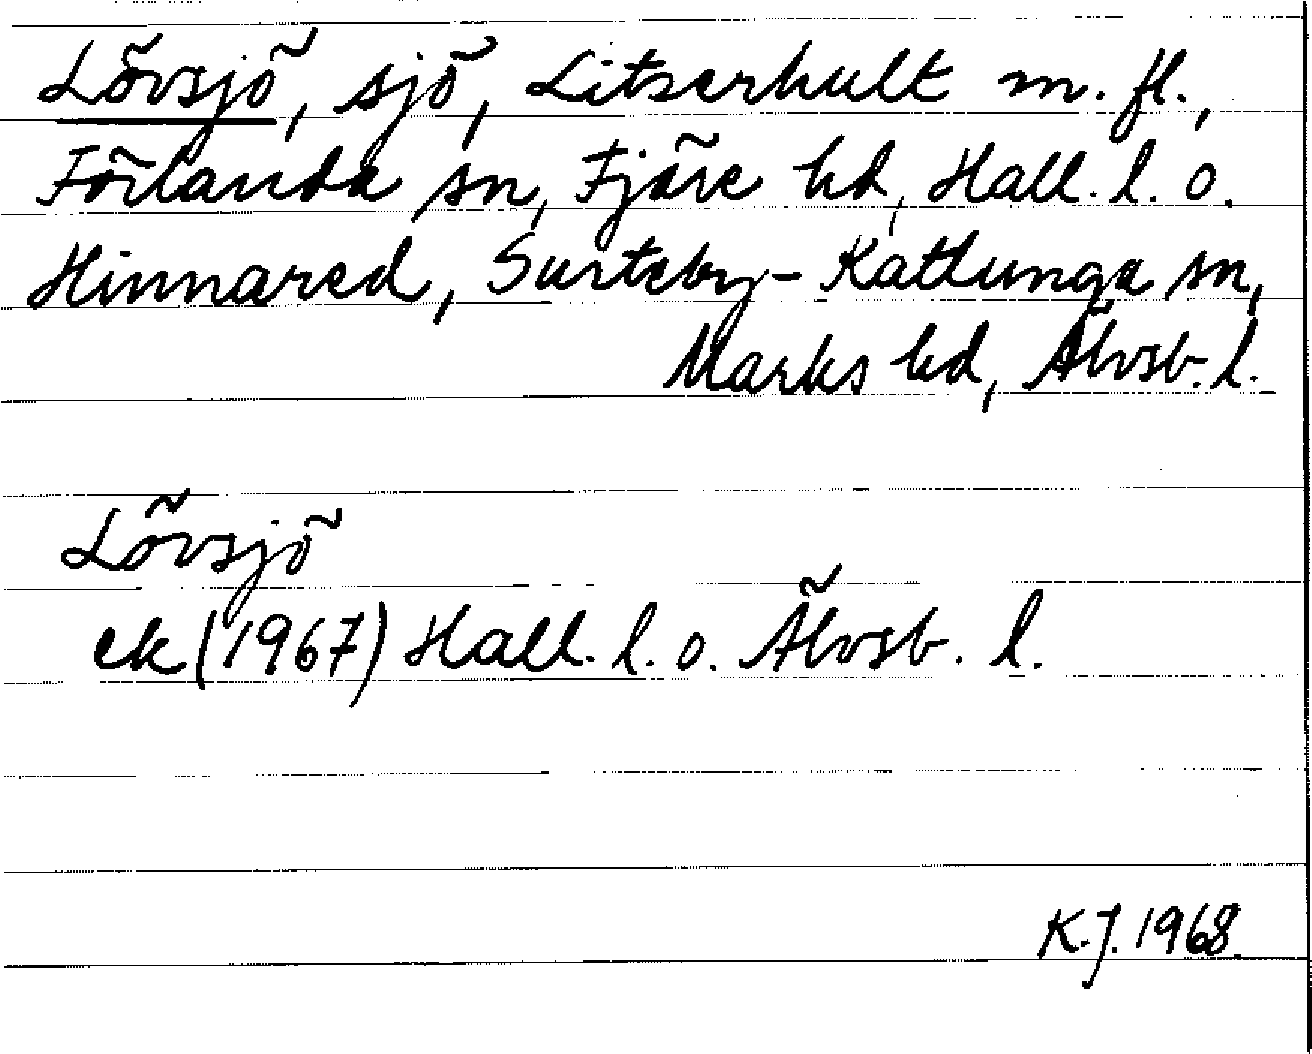 Lövsjö, sjö, Litserhult m. fl.,
Förlanda sn, Fjäre hd, Hall. l. o.
Hinnared, Surteby-Kattunga sn,
Marks hd, Älvsb. l.
Lövsjö
ek (1967) Hall. l. o. Älvsb. l.
K.J. 1968.